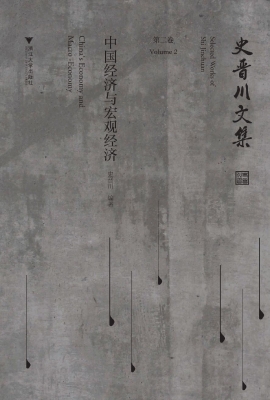 史晋川文集
Selected Works of
Shi Jinchuan
第二卷
Volume 2
中国经济与宏观经济
China's Economy and
Macro-Economy
史晋川 编著
浙江大学出版社